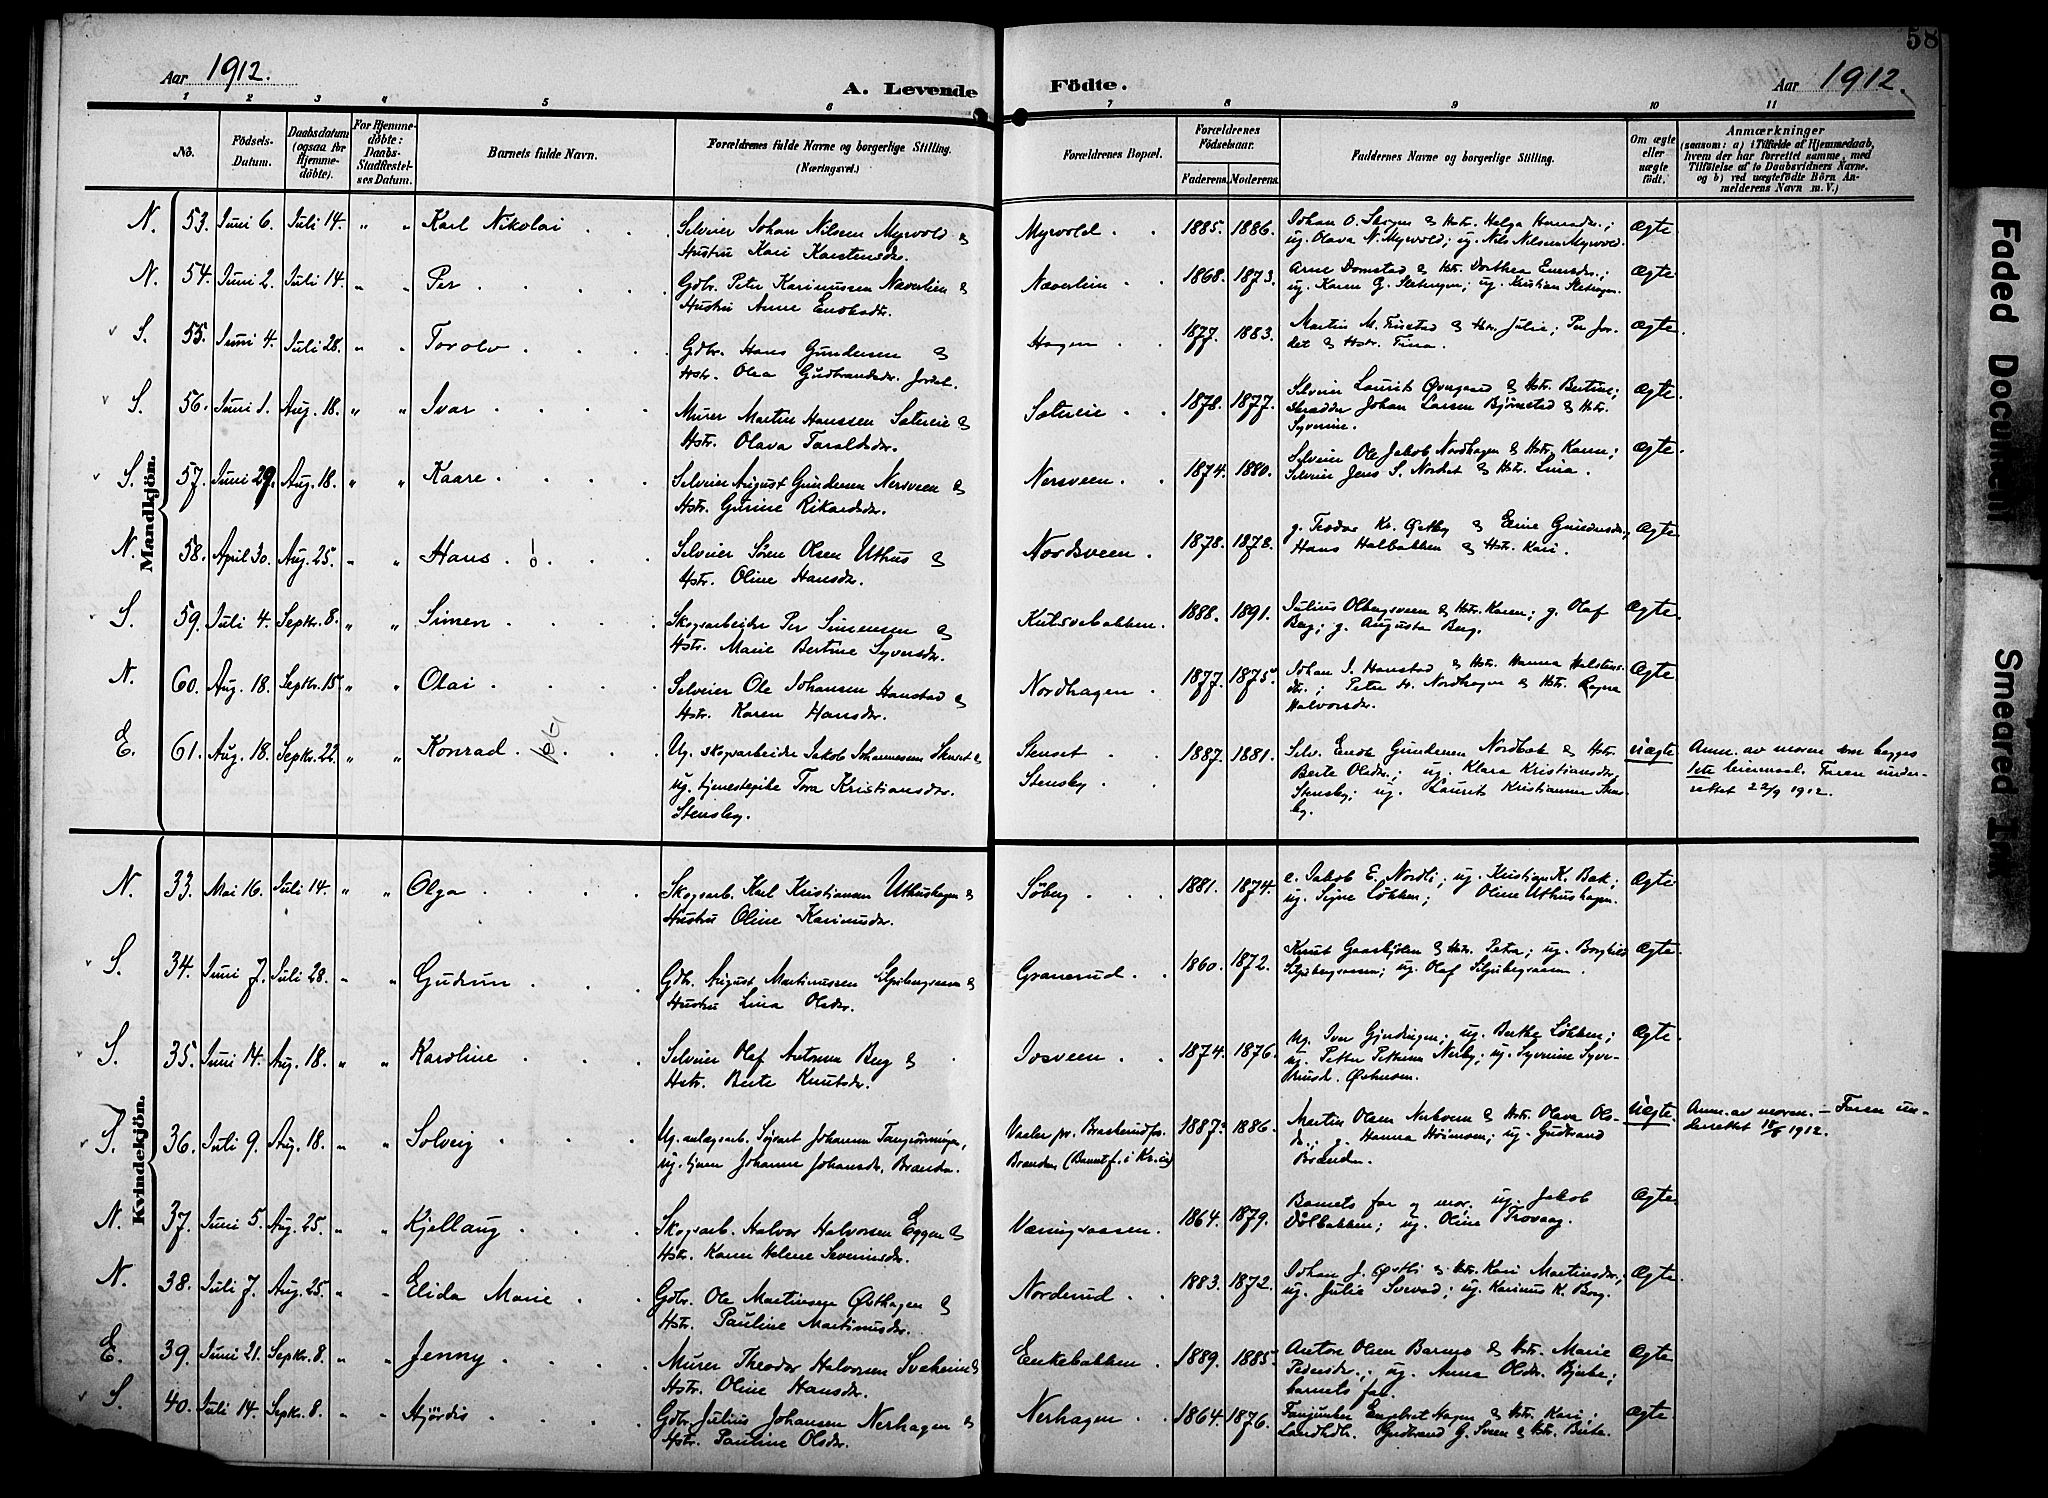 58
Aar 1912.
A. Levende Födte.
Aar 1912.
1 2 3 4 5 6 7 8 9 10 11
No. Födsels-Datum. Daabsdatum (ogsaa for Hjemmedöbte). For Hjemmedöbte: Daabs-Stadfestelses Datum. Barnets fulde Navn. Forældrenes fulde Navne og borgerlige Stilling. (Næringsvei.) Forældrenes Bopæl. Forældrenes Födselsaar. Faderens. Moderens. Faddernes Navne og borgerlige Stilling. Om ægte eller uægte födt. Anmærkninger (saasom: a) i Tilfælde af Hjemmedaab, hvem der har forrettet samme, med Tilföielse af to Daabsvidners Navne. og b) ved uægtefödte Börn Anmelderens Navn m. V.)
Mandkjön.
N. 53. Juni 6. Juli 14. " " Karl Nikolai Selveier Johan Nilsen Myrvold & Myrvold 1885. 1886. Johan O. & Hstr. Helga ; Ægte
Hustru Kari Karstensdr. ug. Olava N. Myrvold; ug. Nils Nilsen Myrvold.
N. 54. Juni 2. Juli 14. " " Per Gdbr. Peter Karinussen Næverlien & Næverlien 1868. 1873. Arne Domstad & Hstr. Dorthea ; Ægte
Hustru Anne ug. Karen G. ; ug. Kristian
S. 55. Juni 4. Juli 28. " " Torolv Gdbr. Hans Gundersen & Hagen 1877. 1883. Martin M. & Hstr. Julie; Per Jor- Ægte.
Hstr. Olea Gudbrandsdr. Jordet. det & Hstr. Tina.
S. 56. Juni 1. Aug. 18. " " Ivar Murer Martin Hanssen Sætereie & Sætereie 1878. 1877. Selveier Laurits Øvergaard & Hstr. Bertine; Ægte.
Hstr. Olava Taraldsdr. skrædder Johan Larsen Bjørnstad & Hstr.
Syverine.
S. 57. Juni 29. Aug. 18. " " Kaare Selveier August Gundersen Nersveen & Nersveen. 1874. 1880. Selveier Ole Jakob Nordhagen & Hstr. Karen; Ægte.
Hstr. Gurine Rikardsdr. Selveier Jens S. Nordset & Hstr. Lina.
N. 58. April 30. Aug. 25. " " Hans Selveier Søren Olsen Uthus & Nordsveen. 1878. 1878. g. Teodor Kr. Østby & Eline Gundersdr.; Ægte.
Hstr. Oline Hansdr. Hans Halbakken & Hstr. Kari.
S. 59. Juli 4. Septbr. 8. " " Simen Skogsarbeider Per Simensen & Kulsvebakken. 1888. 1891. Julius Olbergsveen & Hstr. Karen; g. Olaf Ægte.
Hstr. Marie Bertine Syversdr. Berg; g. Augusta Berg.
N. 60. Aug. 18. Septbr. 15. " " Olai Selveier Ole Johansen Hanstad & Nordhagen 1877. 1875. Johan J. Hanstad & Hstr. Hanna Halstens- Ægte
Hstr. Karen Hansdr. dr.; Peter H. Nordhagen & Hstr. Ragna
Halvorsdr.
E. 61. Aug. 18. Septbr. 22. " " Konrad Ug. skogsarbeider Jakob Johannessen Skurset & Senset 1887. 1881. Selv. Gundersen Nordbæk & Hstr. Uægte Anm. av moren som begges
ug. tjenestepike Tora Kristiansdr. Stensby Berte Olsdr.; ug. Klara Kristiansdr. 1ste leiermaal. Faren under-
Stensby. Stensby; ug. Laurits Kristiansen Stens- rettet 22/9 1912.
by.
Kvindekjön.
N. 33. Mai 16. Juli 14. " " Olga Skogsarb. Karl Kristiansen Uthushagen & Søberg 1881. 1874. e. Jakob E. Nordli; ug. Kristian K. Bak; Ægte.
Hustru Oline Karinusdr. ug. Signe Løkken; Oline Uthushagen.
S. 34. Juni 7. Juli 28. " " Gudrun Gdbr. August Martinussen & Granerud. 1860. 1872. Knut & Hstr. Petra; ug. Borghild Ægte.
Hustru Lina Olsdr. ; ug. Olaf
S. 35. Juni 14. Aug. 18. " " Karoline Selveier Olaf Antonsen Berg & Josveen 1874. 1876. Ug. Iver Gjendringen; ug. Berthe Løkken; Ægte.
Hstr. Berte Knutsdr. ug. Petter Pettersen Nerby; ug. Syverine Syve-
rinusd. Østmoen.
S. 36. Juli 9. Aug. 18. " " Solveig Ug. anlægsarb. Sigvart Johannsen , Vaaler pr. Braskerudfos. 1887. 1886. Martin Olsen & Hstr. Olava Ols- Uægte. Anm. av moren. – Faren un-
ug. tjen. Johanne Johansdr. Branden. Branden (Barnet f. i Kr.ia) dr.; g. Hanna ; ug. Gudbrand derrettet 18/8 1912.
Branden
N. 37. Juni 5. Aug. 25. " " Kjellaug Skogsarb. Halvor Halvorsen Eggen & Væringsaasen. 1864. 1879. Barnets far og mor. ug. Jakob Ægte.
Hstr. Karen Helene Severinsdr. Dølbakken; ug. Oline
N. 38. Juli 7. Aug. 25. " " Elida Marie Gdbr. Ole Martinsen Østhagen & Norderud 1883. 1872. Johan J. Østli & Hstr. Kari Martinsdr.; Ægte.
Hstr. Pauline Martinusdr. ug. Julie ; ug. Karinus K. Borg.
E. 39. Juni 21. Septbr. 8. " " Jenny Murer Theodor Halvorsen & Enkebakken 1889. 1885. Anton Olsen & Hstr. Marie Ægte
Hstr. Oline Hansdr. Pedersdr.; ug. Anna Olsdr. Bjerke;
barnets far.
S. 40. Juli 14. Septbr. 8. " " Hjørdis Gdbr. Julius Johansen Nerhagen & Nerhagen 1864. 1876. Fanjunker Engebret Hagen & Hstr. Kari; Ægte.
Hstr. Pauline Olsdr. Landhdlr. Gudbrand G. Sveen & Hstr. Berte.
Faded Document
Smeared Ink